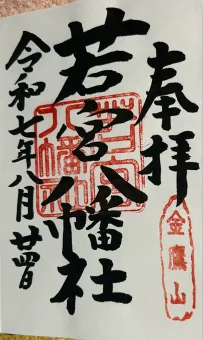 奉拝
金鷹山
若宮八幡社
令和七年八月廿四日